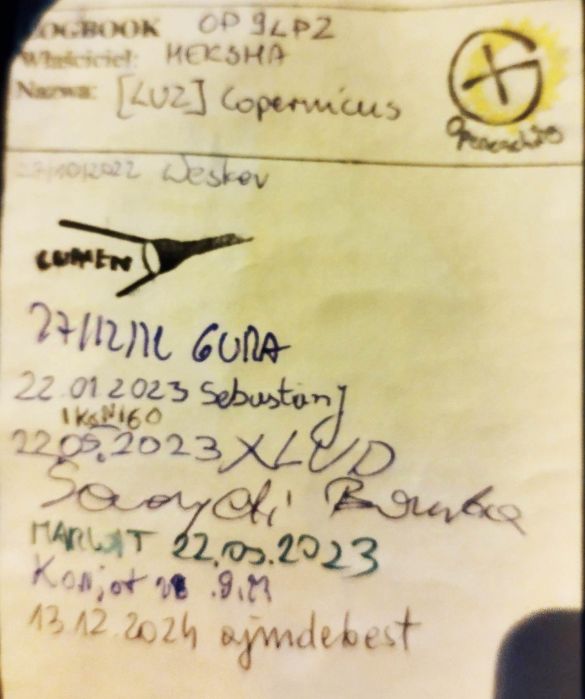 LOGBOOK OP9LPZ
Właściciel: MEKSHA
Nazwa: [LUZ] Copernicus
Geocaching
27/10/2022 Wesker
LUMEN
27/12/22 GURA
22.01.2023 Sebastian J
IKONI60
22.05.2023 XLUD
MARWIT 22.05.2023
Konjot
13.12.2024 ajmdebest